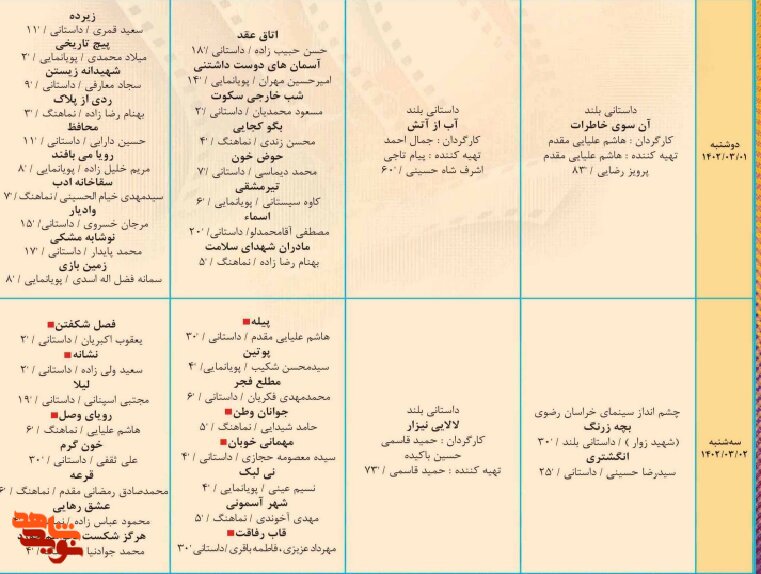 دوشنبه
۱۴۰۲/۰۳/۰۱
داستانی بلند
آن سوی خاطرات
کارگردان : هاشم علیایی مقدم
تهیه کننده : هاشم علیایی مقدم
پرویز رضایی / ۸۳'
داستانی بلند
آب از آتش
کارگردان : جمال احمد
تهیه کننده : پیام تاجی
اشرف شاه حسینی / ۶۰'
اتاق عقد
حسن حبیب زاده / داستانی / ۱۸'
آسمان های دوست داشتنی
امیرحسین مهران / پویانمایی / ۱۴'
شب خارجی سکوت
مسعود محمدیان / داستانی / ۲'
بگو کجایی
محسن زندی / نماهنگ / ۴'
حوض خون
محمد دیماسی / داستانی / ۷'
تیرمشقی
کاوه سیستانی / پویانمایی / ۶'
اسماء
مصطفی آقامحمدلو / داستانی / ۲۰'
مادران شهدای سلامت
بهنام رضا زاده / نماهنگ / ۵'
زیرده
سعید قمری / داستانی / ۱۱'
پیچ تاریخی
میلاد محمدی / پویانمایی / ۲'
شهیدانه زیستن
سجاد معارفی / داستانی / ۹'
ردی از پلاک
بهنام رضا زاده / نماهنگ / ۳'
محافظ
حسین دارابی / داستانی / ۱۱'
رویا می بافند
مریم خلیل زاده / پویانمایی / ۸'
سقاخانه ادب
سیدمهدی خیام الحسینی / نماهنگ / ۷'
وادیار
مرجان خسروی / داستانی / ۱۵'
نوشابه مشکی
محمد پایدار / داستانی / ۱۷'
زمین بازی
سمانه فضل اله اسدی / پویانمایی / ۸'
سه‌شنبه
۱۴۰۲/۰۳/۰۲
چشم انداز سینمای خراسان رضوی
بچه زرنگ
(شهید زوار) / داستانی بلند / ۳۰'
انگشتری
سیدرضا حسینی / داستانی / ۲۵'
داستانی بلند
لالایی نیزار
کارگردان : حمید قاسمی
حسین باکیده
تهیه کننده : حمید قاسمی / ۷۳'
پیله
هاشم علیایی مقدم / داستانی / ۳۰'
پوتین
سیدمحسن شکیب / پویانمایی / ۴'
مطلع فجر
محمدمهدی فکریان / داستانی / ۶'
جوانان وطن
حامد شیدایی / نماهنگ / ۵'
مهمانی خوبان
سیده معصومه حجازی / داستانی / ۴'
نی لبک
نسیم عینی / پویانمایی / ۴'
شهر آسمونی
مهدی آخوندی / نماهنگ / ۵'
قاب رفاقت
مهرداد عزیزی، فاطمه باقری / داستانی / ۳۰'
فصل شکفتن
یعقوب اکبریان / داستانی / ۲'
نشانه
سعید ولی زاده / داستانی / ۲'
لیلا
مجتبی اسپنانی / داستانی / ۱۹'
رویای وصل
هاشم علیایی / نماهنگ / ۶'
خون گرم
علی ثقفی / داستانی / ۳۰'
قرعه
محمدصادق رمضانی مقدم / نماهنگ / ۶'
عشق رهایی
محمود عباس زاده /
هرگز شکست
محمد جوادنیا / ۴'
نوید شاهد